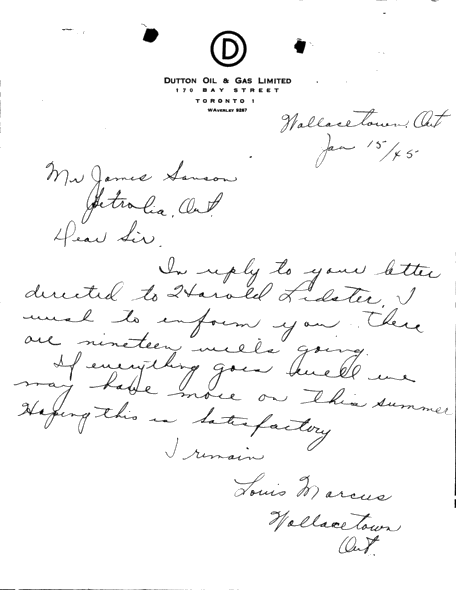 D
DUTTON OIL & GAS LIMITED
170 BAY STREET
TORONTO 1
WAVERLEY 9267
Wallacetown, Ont
Jan 15/45
Mr James Sanson
Petrolia, Ont.
Dear Sir.
In reply to your letter
directed to Harold Lidster, I
wish to inform you there
are nineteen wells going.
If everything goes well we
may have more on this summer
Hoping this is Satisfactory
I remain
Louis Marcus
Wallacetown
Ont.